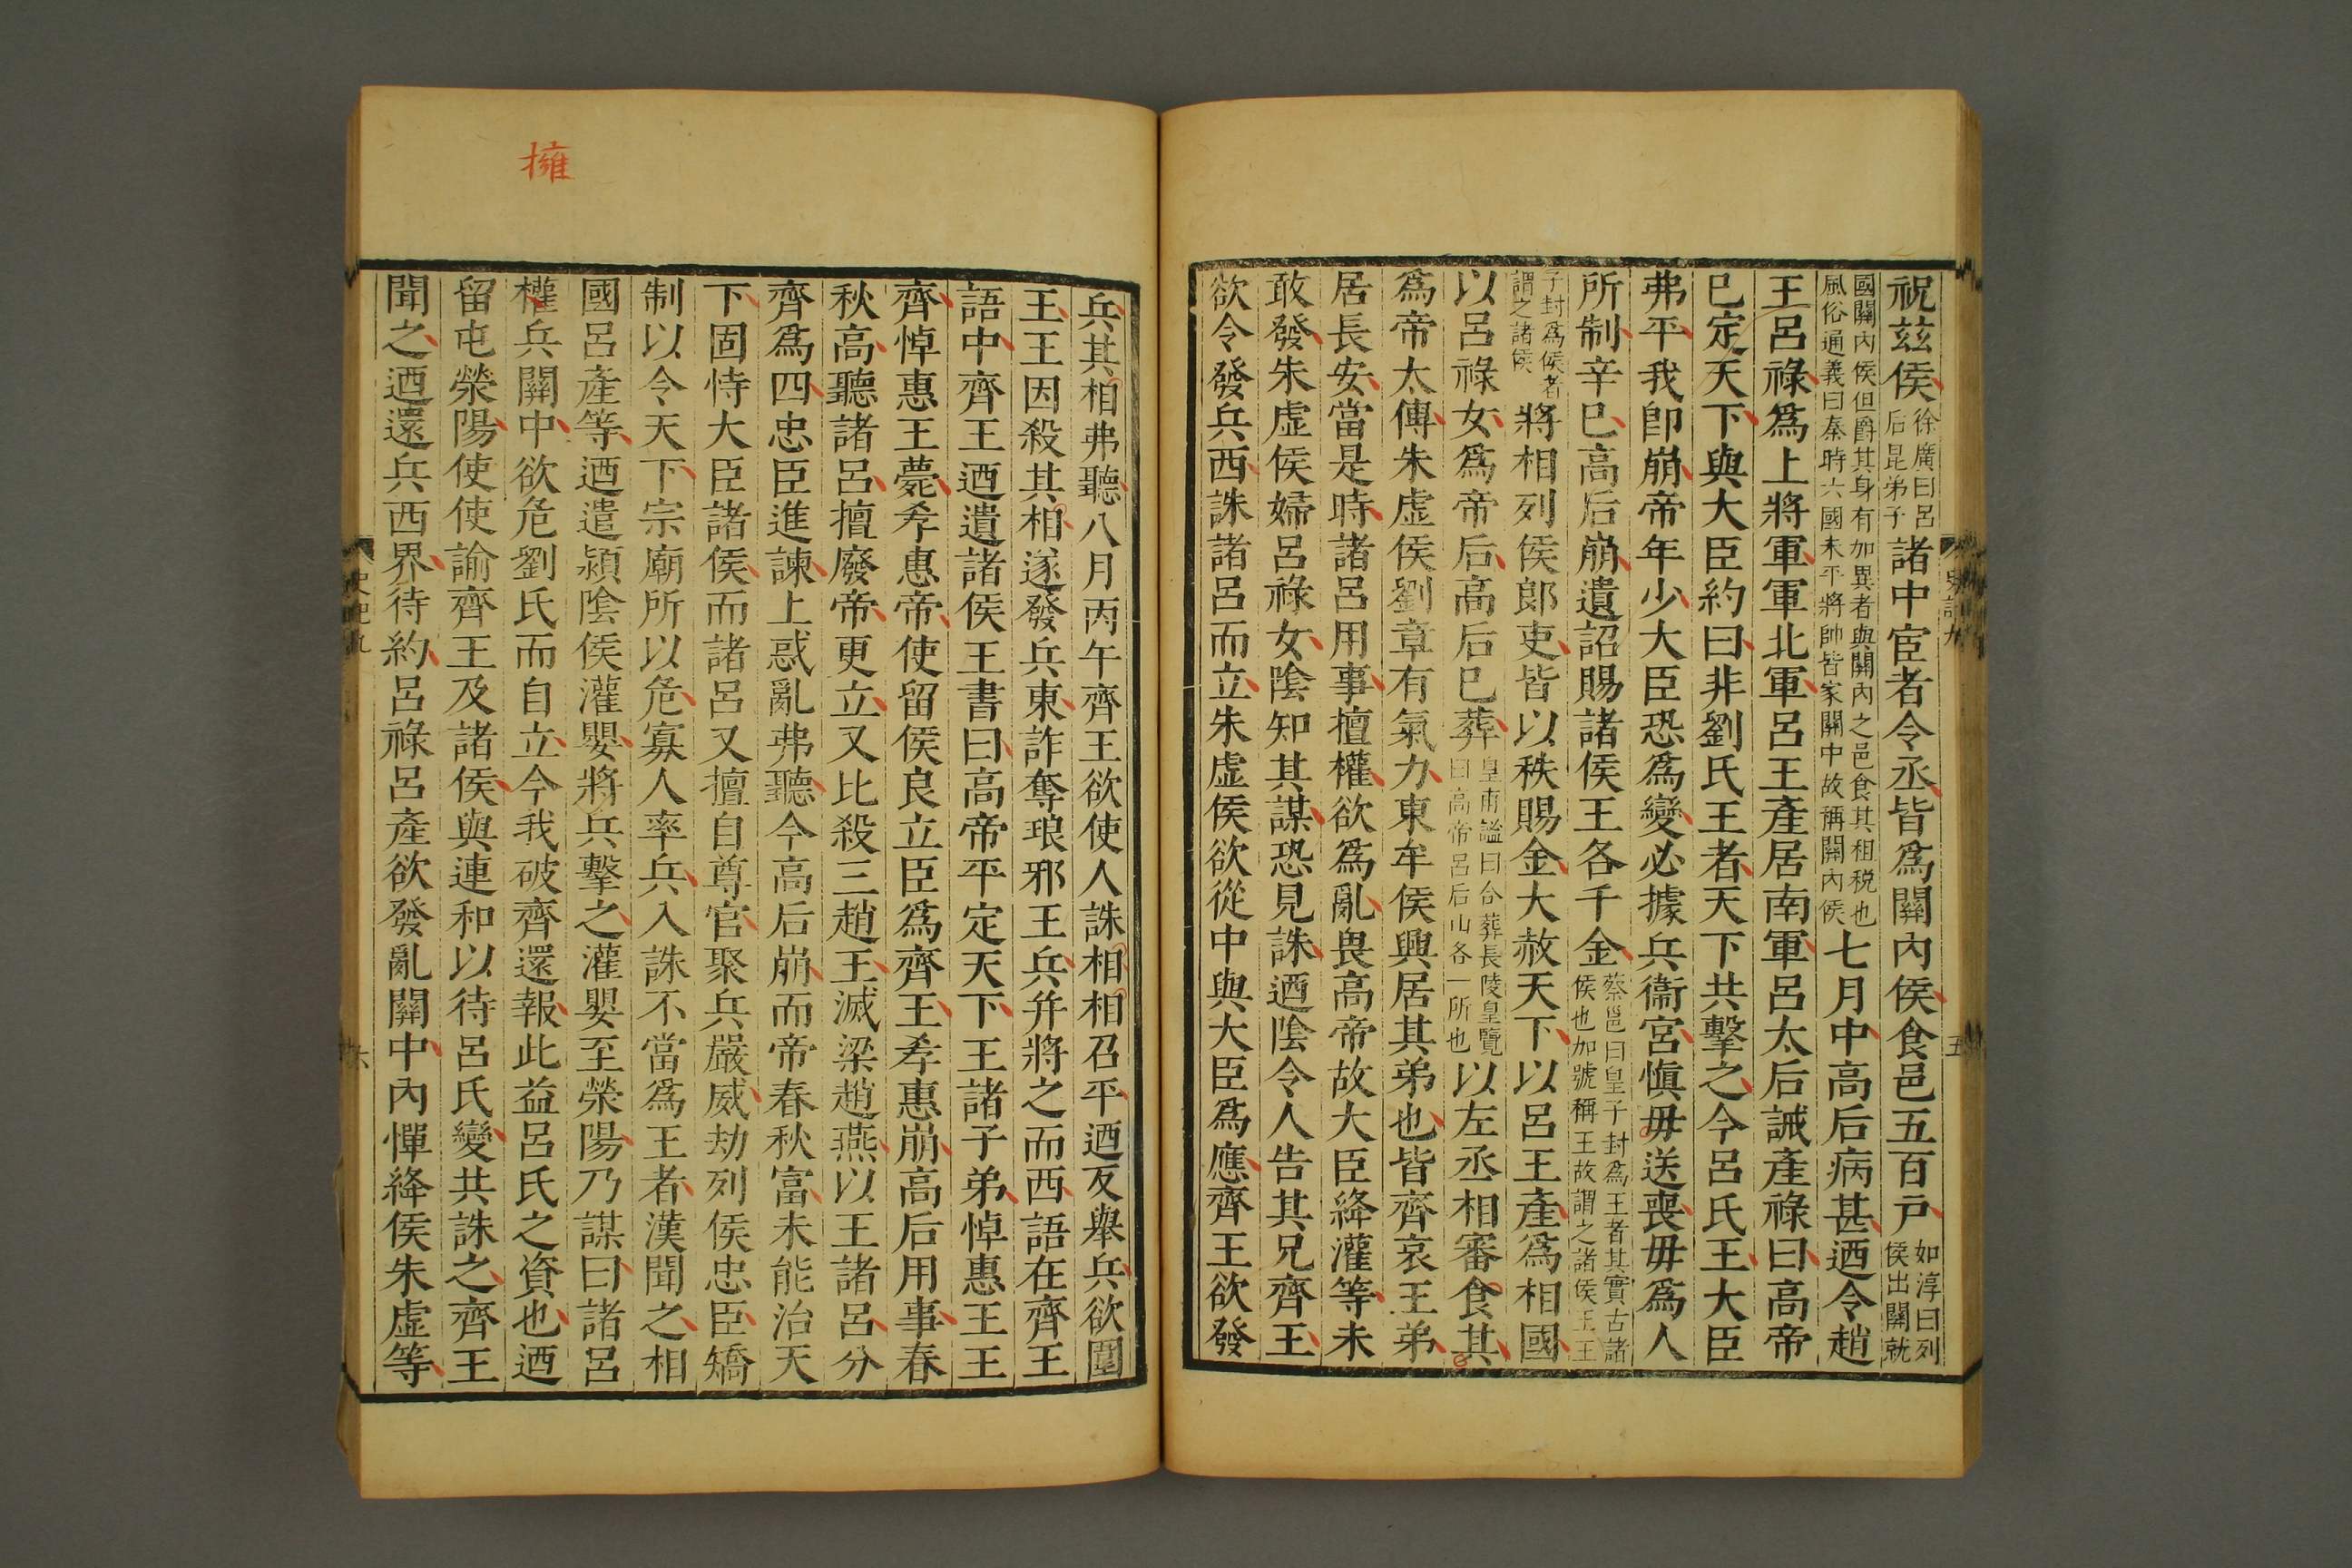 祝茲侯徐廣曰呂后昆弟子諸中宦者令丞皆爲關內侯食邑五百戸如淳曰列侯出關就
國關內侯但爵其身有加異者與關內之邑食其租税也風俗通義曰秦時六國未平將帥皆家關中故稱關內侯七月中高后病甚迺令趙
王呂祿爲上將軍軍北軍呂王產居南軍呂太后誡產祿曰高帝
已定天下與大臣約曰非劉氏王者天下共擊之今呂氏王大臣
弗平我即崩帝年少大臣恐爲變必據兵衞宮愼毋送喪毋爲人
所制辛巳高后崩遺詔賜諸侯王各千金蔡邕曰皇子封爲王者其實古諸侯也加號稱王故謂之諸侯王王
子封爲侯者謂之諸侯將相列侯郎吏皆以秩賜金大赦天下以呂王產爲相國
以呂祿女爲帝后高后已葬皇甫謐曰合葬長陵皇覽曰高帝呂后山各一所也以左丞相審食其
爲帝太傅朱虛侯劉章有氣力東牟侯興居其弟也皆齊哀王弟
居長安當是時諸呂用事擅權欲爲亂畏高帝故大臣絳灌等未
敢發朱虛侯婦呂祿女陰知其謀恐見誅迺陰令人告其兄齊王
欲令發兵西誅諸呂而立朱虛侯欲從中與大臣爲應齊王欲發
史記九
五
兵其相弗聽八月丙午齊王欲使人誅相相召平迺反舉兵欲圍
王王因殺其相遂發兵東詐奪琅邪王兵幷將之而西語在齊王
語中齊王迺遺諸侯王書曰高帝平定天下王諸子弟悼惠王王
齊悼惠王薨孝惠帝使留侯良立臣爲齊王孝惠崩高后用事春
秋高聽諸呂擅廢帝更立又比殺三趙王滅梁趙燕以王諸呂分
齊爲四忠臣進諫上惑亂弗聽今高后崩而帝春秋富未能治天
下固恃大臣諸侯而諸呂又擅自尊官聚兵嚴威劫列侯忠臣矯
制以令天下宗廟所以危寡人率兵入誅不當爲王者漢聞之相
國呂產等迺遣潁陰侯灌嬰將兵擊之灌嬰至滎陽乃謀曰諸呂
權兵關中欲危劉氏而自立今我破齊還報此益呂氏之資也迺
留屯滎陽使使諭齊王及諸侯與連和以待呂氏變共誅之齊王
聞之迺還兵西界待約呂祿呂產欲發亂關中內憚絳侯朱虛等
史記九
六
擁